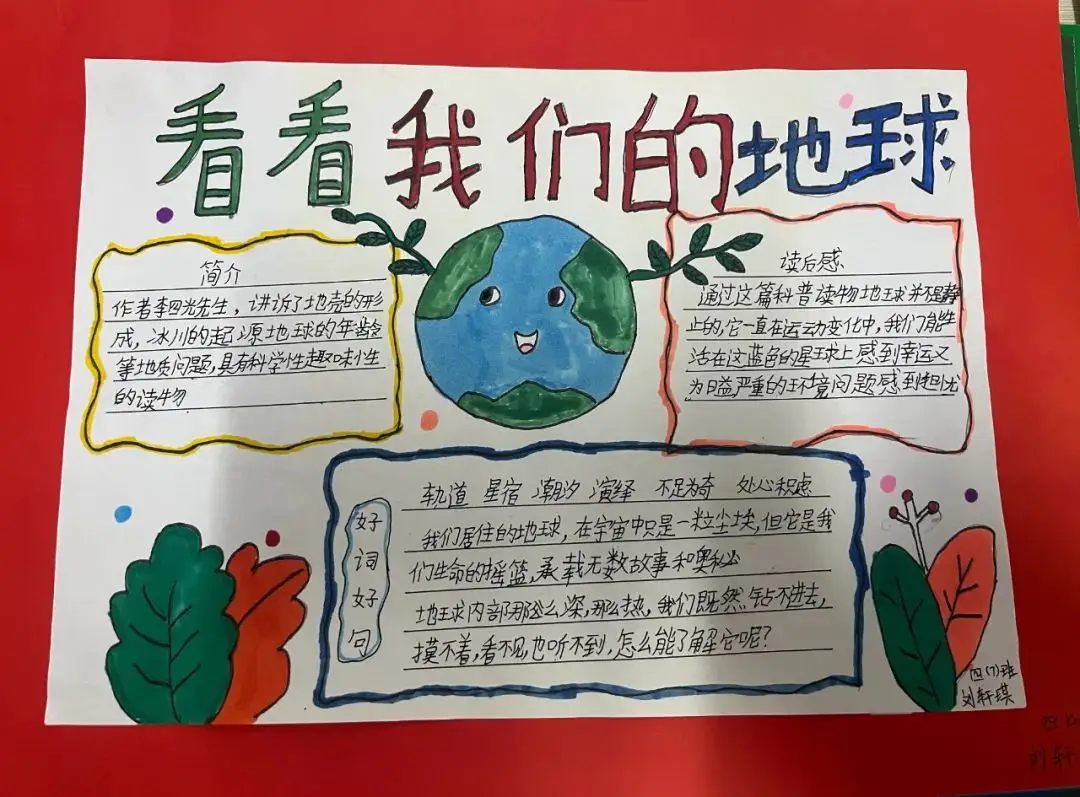 看看我们的地球
简介
作者李四光先生，讲诉了地壳的形
成，冰川的起源地球的年龄
等地质问题，具有科学性趣味性
的读物
读后感
通过这篇科普读物地球并不是静
止的，它一直在运动变化中，我们能生
活在这蓝色的星球上感到幸运又
为日益严重的环境问题感到担忧
好词好句
轨道 星宿 潮汐 演绎 不足为奇 处心积虑
我们居住的地球，在宇宙中只是一粒尘埃，但它是我
们生命的摇篮，承载无数故事和奥秘
地球内部那么深，那么热，我们既然钻不进去，
摸不着，看不见，也听不到，怎么能了解它呢？
四（7）班
刘轩琪
刘轩